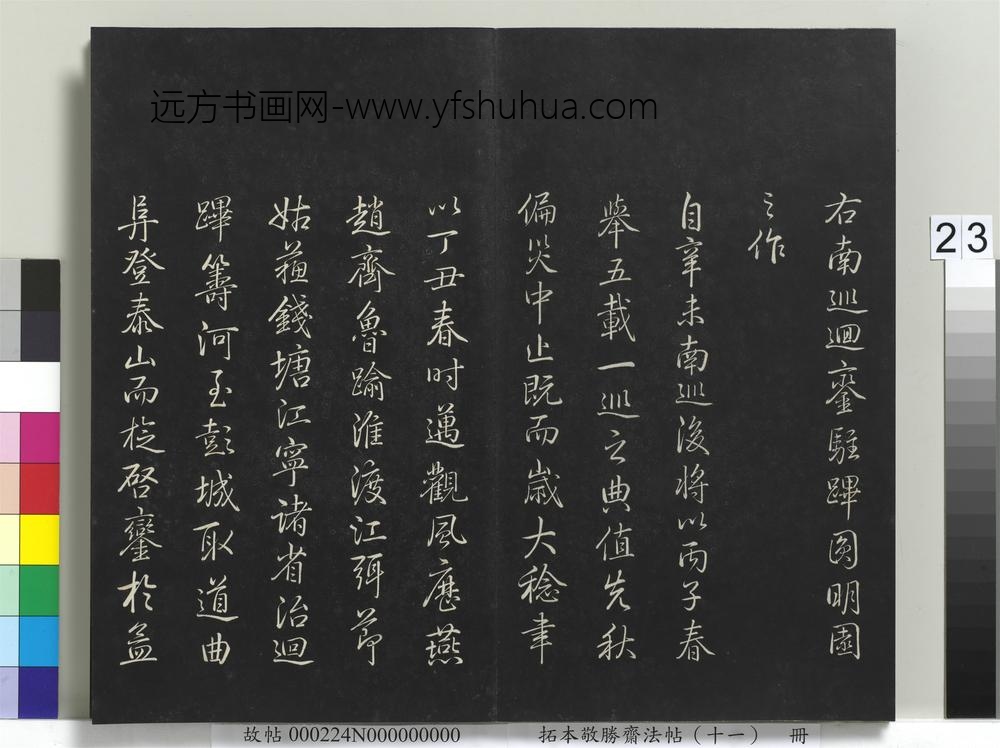 远方书画网-www.yfshuhua.com
右南巡迴鑾駐蹕圓明園
之作
自辛未南巡後將以丙子春
舉五載一巡之典值先秋
偏災中止既而歲大稔聿
以丁丑春时邁觀風歷燕
趙齊魯踰淮渡江弭節
姑蘓錢塘江寧诸省治迴
蹕籌河至彭城取道曲
阜登泰山而旋啓鑾於孟
23
故帖 000224N000000000
拓本敬勝齋法帖（十一） 冊